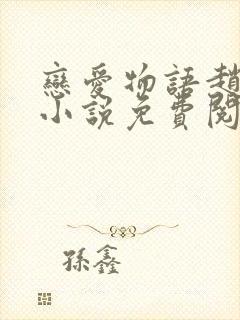 戀愛物語趙
小說免費閱
孫鑫